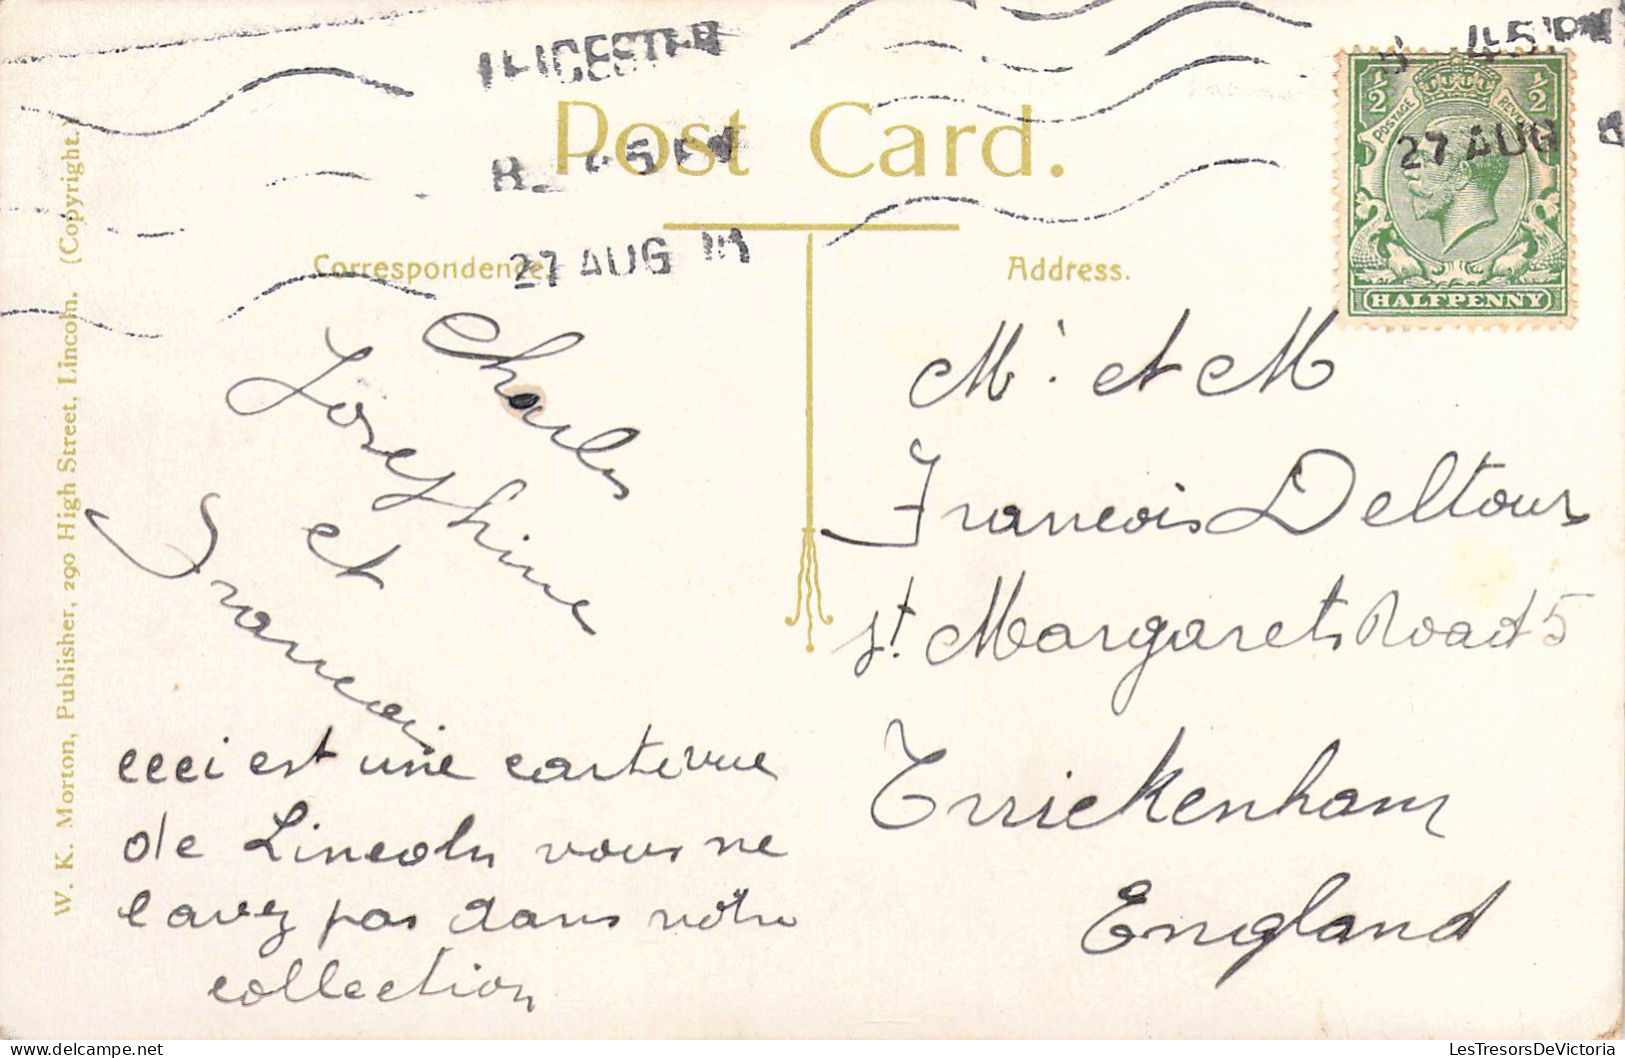 LEICESTER
8. 45 PM
27 AUG
45 PM
27 AUG
Post Card.
Correspondence.
Address.
1/2
1/2
POSTAGE
REVENUE
HALFPENNY
W. K. Morton, Publisher, 290 High Street, Lincoln. (Copyright.)
Charles
Josephine
et
Francois
ceci est une carte vue
de Lincoln vous ne
l avez pas dans votre
collection
Mr. et M
Francois Deltour
St. Margarets Road 5
Twickenham
England
LesTresorsDeVictoria